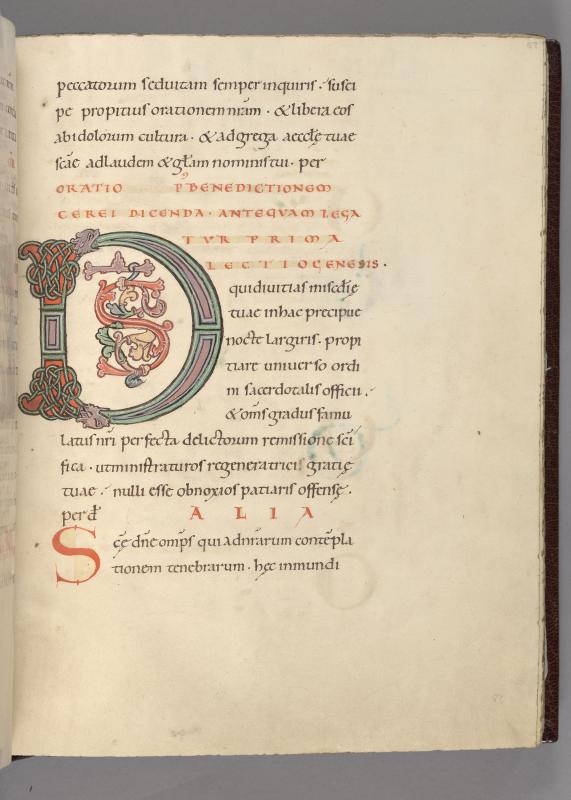 peccatorum sed uitam semper inquiris · susci
pe propitius orationem nr̄am · & libera eos
ab idolorum cultura · & adgrega aeccl̄ę tuae
sc̄ae ad laudem & gl̄am nominis tui · per
ORATIO P̾ BENEDICTIONEM
CEREI DICENDA · ANTEQVAM LEGA
TVR PRIMA
LECTIO GENESIS ·
DS
qui diuitias miscd̄ię
tuae in hac precipue
nocte largiris · propi
tiare uniuerso ordi
ni sacerdotalis officii ·
& om̄s gradus famu
latus nr̄i perfecta delictorum remissione sc̄i
fica · ut ministraturos regeneratricis gratię
tuae · nulli esse obnoxios patiaris offensę ·
per d̄
ALIA
Sc̄ę dn̄e omp̄s qui ad nr̄arum contēpla
tionem tenebrarum · hęc in mundi